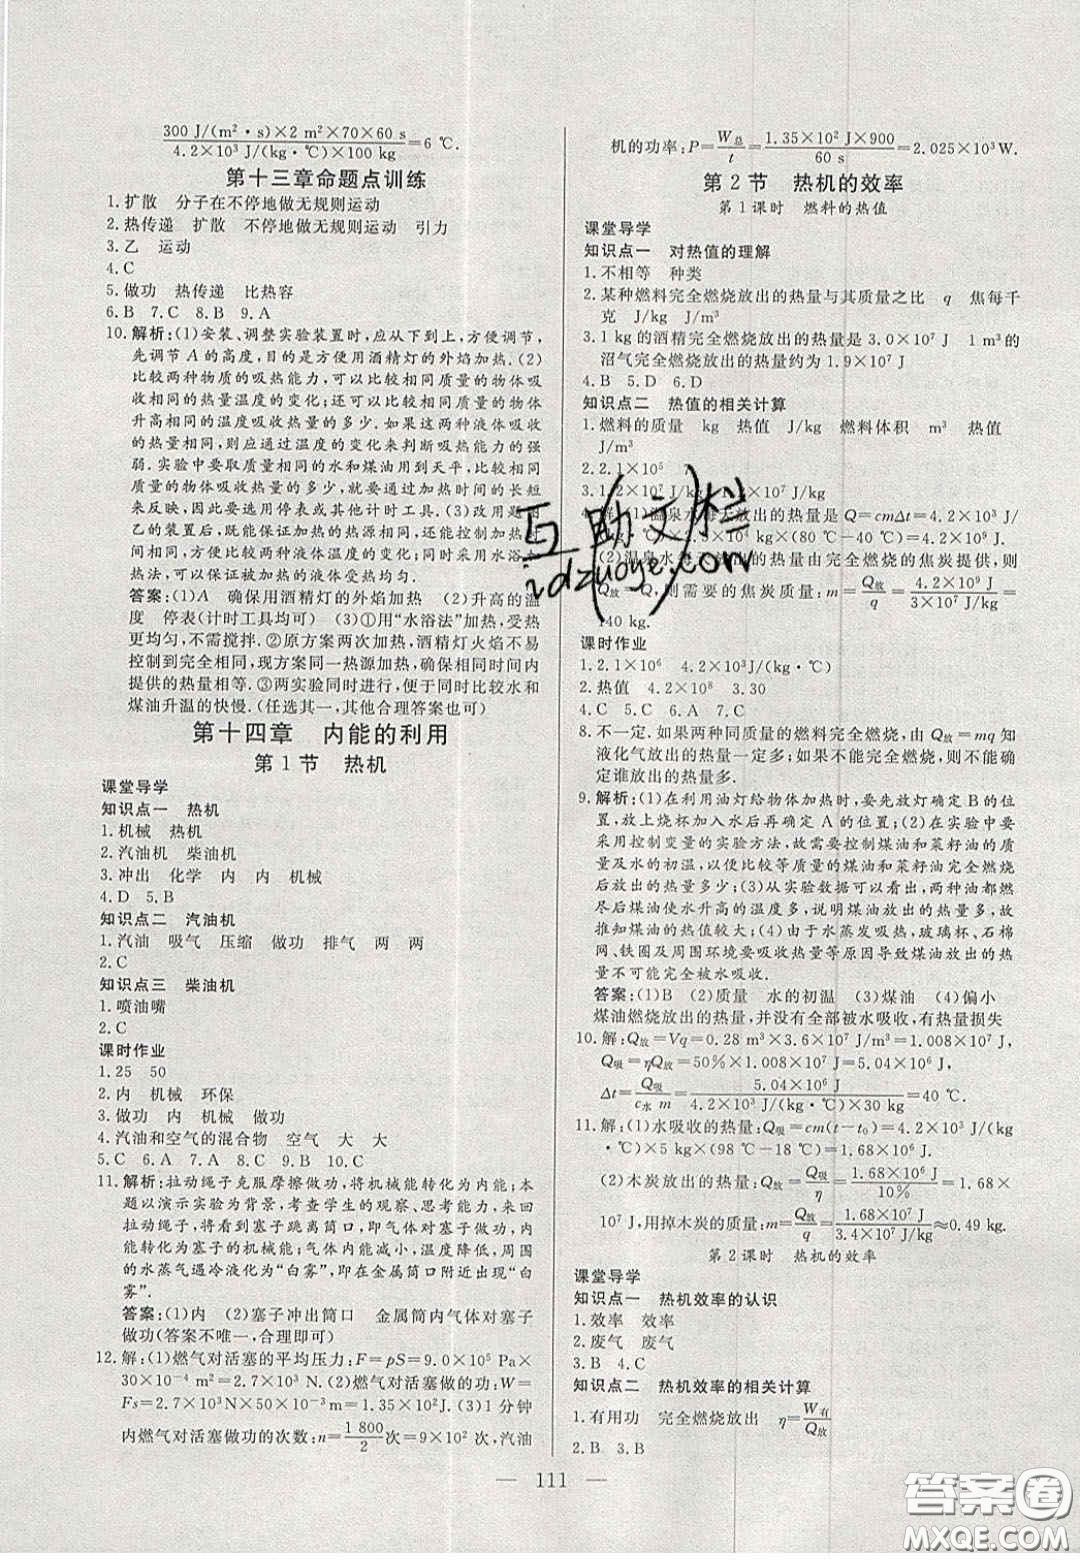 300 J/(m²·s)×2 m²×70×60 s
4.2×10³ J/(kg·℃)×100 kg =6 ℃.
第十三章命题点训练
1.扩散 分子在不停地做无规则运动
2.热传递 扩散 不停地做无规则运动 引力
3.乙 运动
4.C
5.做功 热传递 比热容
6.B 7.C 8.B 9.A
10.解析:(1)安装、调整实验装置时,应从下到上,方便调节,
先调节 A 的高度,目的是方便用酒精灯的外焰加热.(2)
比较两种物质的吸热能力,可以比较相同质量的物体吸
收相同热量温度的变化;还可以比较相同质量的物体升
高相同温度吸收热量的多少.如果这两种液体吸收的
热量相同,则应通过温度的变化来判断吸热能力的强
弱.实验中要取质量相同的水和煤油用到天平,比较相同
质量的物体吸收热量的多少,就要通过加热时间的长短
来反映,因此要选用停表或其他计时工具.(3)改用题图
乙的装置后,可以保证加热的热源相同,还能控制加热
时间相同,方便比较两种物质的吸热;同时采用水浴加
热法,可以保证被加热的液体受热均匀.
答案:(1)A 确保用酒精灯的外焰加热 (2)升高的温
度 停表(计时工具均可) (3)①用“水浴法”加热,受热
更均匀,不需搅拌.②原方案两次加热,酒精灯火焰不易
控制到完全相同,现方案同一热源加热,确保相同时间内
提供的热量相等.③两实验同时进行,便于更好地比较水和
煤油升温的快慢.(任选其一,其他合理答案也可)
第十四章 内能的利用
第1节 热机
课堂导学
知识点一 热机
1.机械 热机
2.汽油机 柴油机
3.冲出 化学 内 内 机械
4.D 5.B
知识点二 汽油机
1.汽油 吸气 压缩 做功 排气 两 两
2.C
知识点三 柴油机
1.喷油嘴
2.C
课时作业
1.25 50
2.内 机械 环保
3.做功 内 机械 做功
4.汽油和空气的混合物 空气 大 大
5.C 6.A 7.A 8.C 9.B 10.C
11.解析:拉动绳子克服摩擦做功,将机械能转化为内能;本
题以演示实验为背景,考查学生的观察、思考能力,来回
拉动绳子,将看到塞子跳离筒口,即气体对塞子做功,内
能转化为塞子的机械能;气体内能减小,温度降低,周围
的水蒸气遇冷液化为“白雾”,即在金属筒口附近出现“白
雾”.
答案:(1)内 (2)塞子冲出筒口 金属筒内气体对塞子
做功(答案不唯一,合理即可)
12.解:(1)燃气对活塞的平均压力:F=pS=9.0×10⁵ Pa×
30×10⁻⁴ m²=2.7×10³ N.(2)燃气对活塞做的功:W=
Fs=2.7×10³N×50×10⁻³ m=1.35×10² J.(3)1分钟
内燃气对活塞做功的次数:n=1 800/2次=9×10²次,汽油
机的功率:P=W总/t=1.35×10² J×900/60 s=2.025×10³W.
第2节 热机的效率
第1课时 燃料的热值
课堂导学
知识点一 对热值的理解
1.不相等 种类
2.某种燃料完全燃烧放出的热量与其质量之比 q 焦每千
克 J/kg J/m³
3.1 kg的酒精完全燃烧放出的热量是3.0×10⁷ J 1 m³的
沼气完全燃烧放出的热量约为1.9×10⁷ J
4.B 5.D 6.D
知识点二 热值的相关计算
1.燃料的质量 kg 热值 J/kg 燃料体积 m³ 热值
J/m³
2.2.1×10⁵ 7
3.1.2×10⁷ J/kg
放出的热量是Q=cmΔt=4.2×10³ J/
kg×(80 ℃-40 ℃)=4.2×10⁹ J.
(2)温泉水 的热量由完全燃烧的焦炭提供,则
Q放=Q,则需要的焦炭质量:m=Q放/q=4.2×10⁹ J/3×10⁷ J/kg=
140 kg.
课时作业
1.2.1×10⁶ 4.2×10³J/(kg·℃)
2.热值 4.2×10⁸ 3.30
4.C 5.C 6.A 7.C
8.不一定.如果两种同质量的燃料完全燃烧,由Q放=mq知
液化气放出的热量一定多;如果不能完全燃烧,则不能确
定谁放出的热量多.
9.解析:(1)在利用油灯给物体加热时,要先放灯确定B的位
置,放上烧杯加入水后再确定A的位置;(2)在实验中要
采用控制变量的实验方法,故需要控制煤油和菜籽油的质
量及水的初温,以便比较等质量的煤油和菜籽油完全燃烧
后放出的热量多少;(3)从实验数据可以看出,两种油都燃
尽后煤油使水升高的温度多,说明煤油放出的热量多,故
推知煤油的热值较大;(4)由于水蒸发吸热,玻璃杯、石棉
网、铁圈及周围环境要吸收热量等原因导致煤油放出的热
量不可能完全被水吸收.
答案:(1)B (2)质量 水的初温 (3)煤油 (4)偏小
煤油燃烧放出的热量,并没有全部被水吸收,有热量损失
10.解:Q放=Vq=0.28 m³×3.6×10⁷ J/m³=1.008×10⁷J,
Q吸=ηQ放=50%×1.008×10⁷ J=5.04×10⁶ J,
Δt=Q吸/c水 m=5.04×10⁶ J/4.2×10³ J/(kg·℃)×30 kg=40 ℃.
11.解:(1)水吸收的热量:Q吸=cm(t-t₀)=4.2×10³J/(kg
·℃)×5 kg×(98 ℃-18 ℃)=1.68×10⁶J.
(2)木炭放出的热量:Q放=Q吸/η=1.68×10⁶ J/10%=1.68×
10⁷ J,用掉木炭的质量:m=Q放/q=1.68×10⁷ J/3.4×10⁷ J/kg≈0.49 kg.
第2课时 热机的效率
课堂导学
知识点一 热机效率的认识
1.效率 效率
2.废气 废气
3.B 4.C
知识点二 热机效率的相关计算
1.有用功 完全燃烧放出 η=W有/Q放
2.B 3.B
— 111 —
互助文档
idzuoye.com
答案圈
MXQE.COM